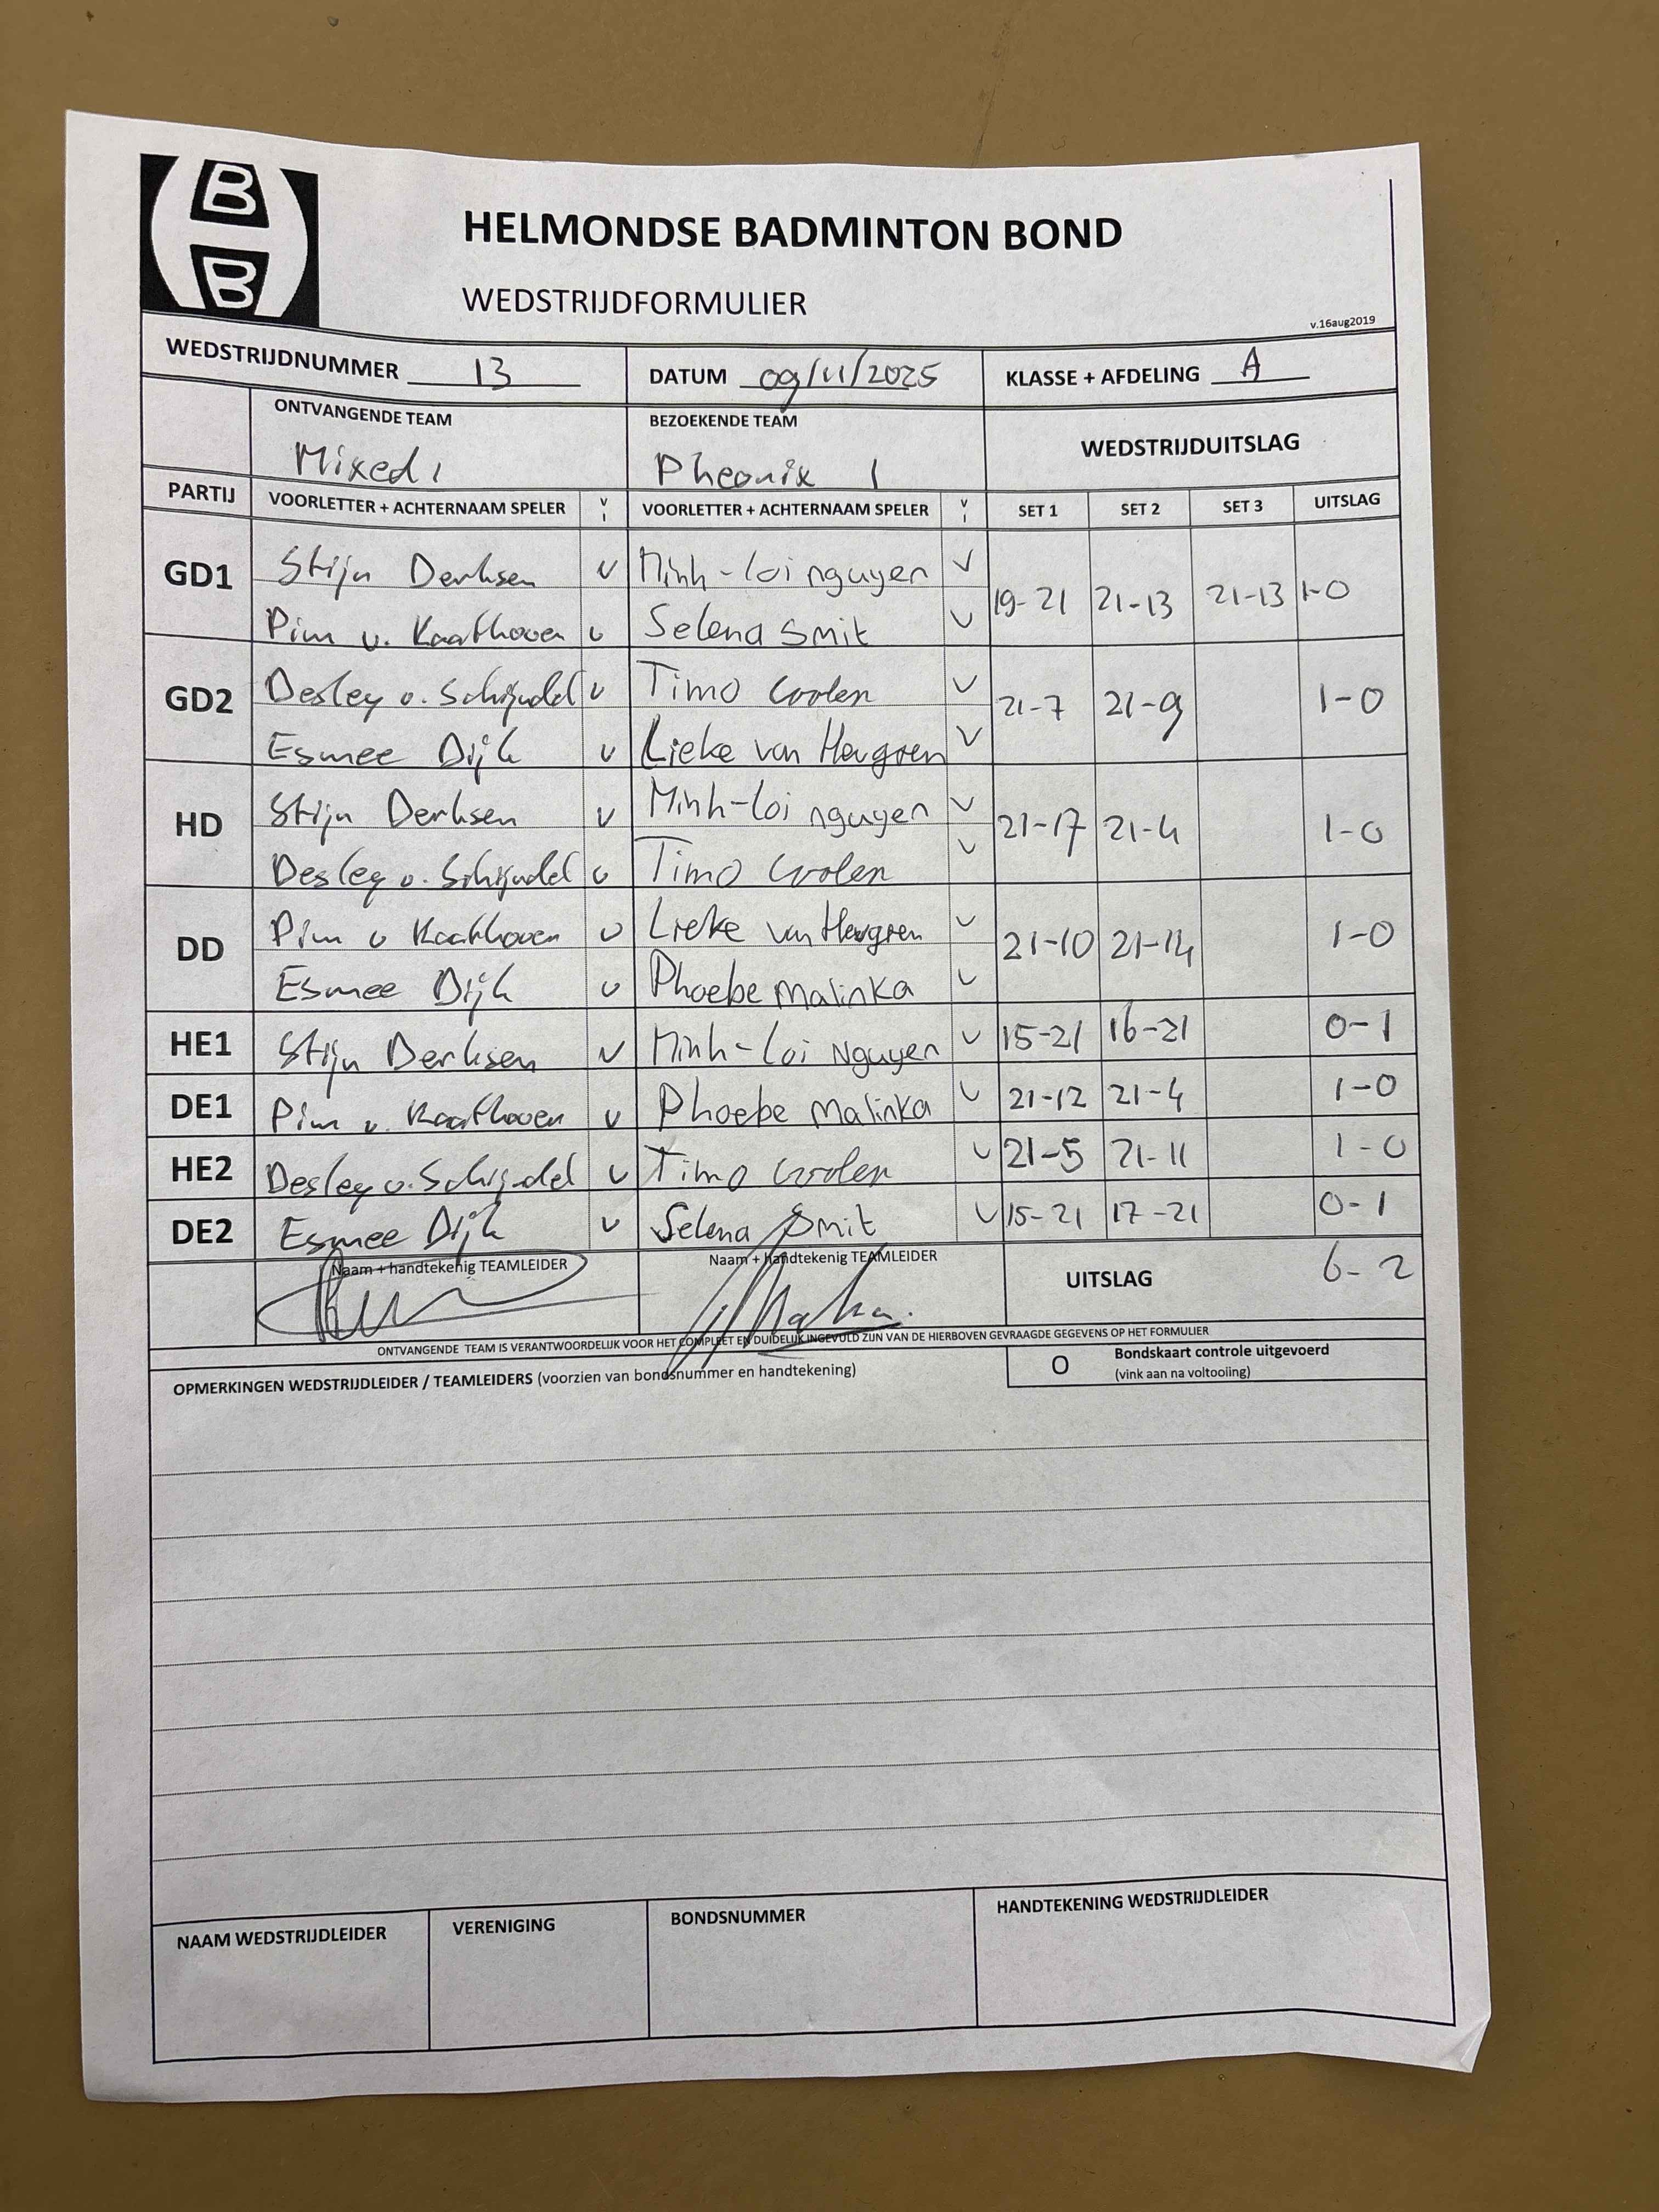 B
B
HELMONDSE BADMINTON BOND
WEDSTRIJDFORMULIER
v.16aug2019
WEDSTRIJDNUMMER 13 DATUM 09/11/2025 KLASSE + AFDELING A
ONTVANGENDE TEAM BEZOEKENDE TEAM WEDSTRIJDUITSLAG
Mixed 1 Pheonix 1
PARTIJ VOORLETTER + ACHTERNAAM SPELER V I VOORLETTER + ACHTERNAAM SPELER V I SET 1 SET 2 SET 3 UITSLAG
GD1 Stijn Derksen v Minh-loi nguyen v 19-21 21-13 21-13 1-0
Pim v. Kaathoven v Selena Smit v
GD2 Desley v. Schijndel v Timo Coolen v 21-7 21-9 1-0
Esmee Dijk v Lieke van v
HD Stijn Derksen v Minh-loi nguyen v 21-17 21-4 1-0
Desley v. Schijndel v Timo Coolen v
DD Pim v Kaathoven v Lieke van v 21-10 21-14 1-0
Esmee Dijk v Phoebe Malinka v
HE1 Stijn Derksen v Minh-Loi Nguyen v 15-21 16-21 0-1
DE1 Pim v. Kaathoven v Phoebe Malinka v 21-12 21-4 1-0
HE2 Desley v. Schijndel v Timo Coolen v 21-5 21-11 1-0
DE2 Esmee Dijk v Selena Smit v 15-21 17-21 0-1
Naam + handtekenig TEAMLEIDER Naam + handtekenig TEAMLEIDER UITSLAG 6-2
ONTVANGENDE TEAM IS VERANTWOORDELIJK VOOR HET COMPLEET EN DUIDELIJK INGEVULD ZIJN VAN DE HIERBOVEN GEVRAAGDE GEGEVENS OP HET FORMULIER
OPMERKINGEN WEDSTRIJDLEIDER / TEAMLEIDERS (voorzien van bondsnummer en handtekening) O Bondskaart controle uitgevoerd
(vink aan na voltooiing)
NAAM WEDSTRIJDLEIDER VERENIGING BONDSNUMMER HANDTEKENING WEDSTRIJDLEIDER